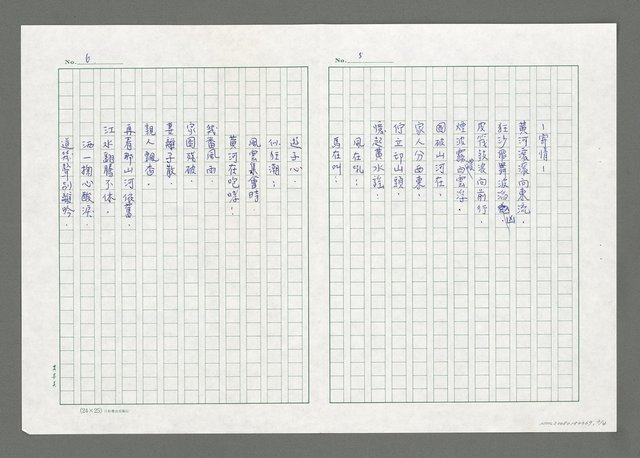 No. 5
—寄情—
黃河滾滾向東流.
狂沙風舞波濤兇.
皮筏鼓浪向前行.
煙波飄向雲岸.
國破山河在.
家人分西東.
佇立邙山頭.
憶起黃水謠.
風在吼.
馬在叫.
No. 6
遊子心.
似狂潮.
風雲集會時
黃河在咆哮.
幾番風雨
家園殘破.
妻離子散
親人飄杳.
再看那山河依舊.
江水翻騰不休.
洒一掬心酸淚.
這幾聲別離吟.
(24×25)